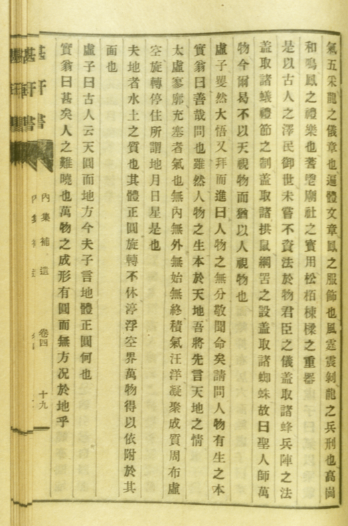 氣五采龍之儀章也遍體文章鳳之服飾也風雲雷霰龍之兵刑也高岡
和鳴鳳之禮樂也蓍雲廟社之寶用松栢棟樑之重器
是以古人之澤民御世未嘗不資法於物君臣之儀蓋取諸蜂兵陣之法
蓋取諸蟻禮節之制蓋取諸拱鼠網罟之設蓋取諸蜘蛛故曰聖人師萬
物今爾曷不以天視物而猶以人視物也
虛子矍然大悟又拜而進曰人物之無分敬聞命矣請問人物有生之本
實翁曰善哉問也雖然人物之生本於天地吾將先言天地之情
太虛寥廓充塞者氣也無內無外無始無終積氣汪洋凝聚成質周布虛
空旋轉停住所謂地月日星是也
夫地者水土之質也其體正圓旋轉不休渟浮空界萬物得以依附於其
面也
虛子曰古人云天圓而地方今夫子言地體正圓何也
實翁曰甚矣人之難曉也萬物之成形有圓而無方況於地乎
湛軒書
內集補遺 卷四 十九